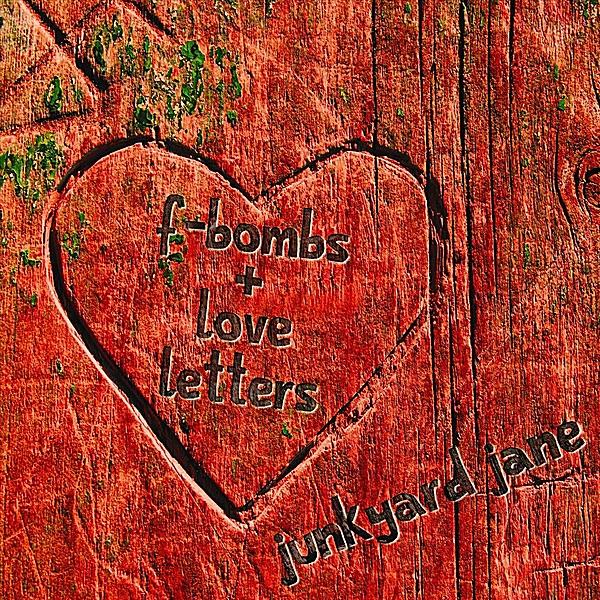 f-bombs
+
love
letters
junkyard jane